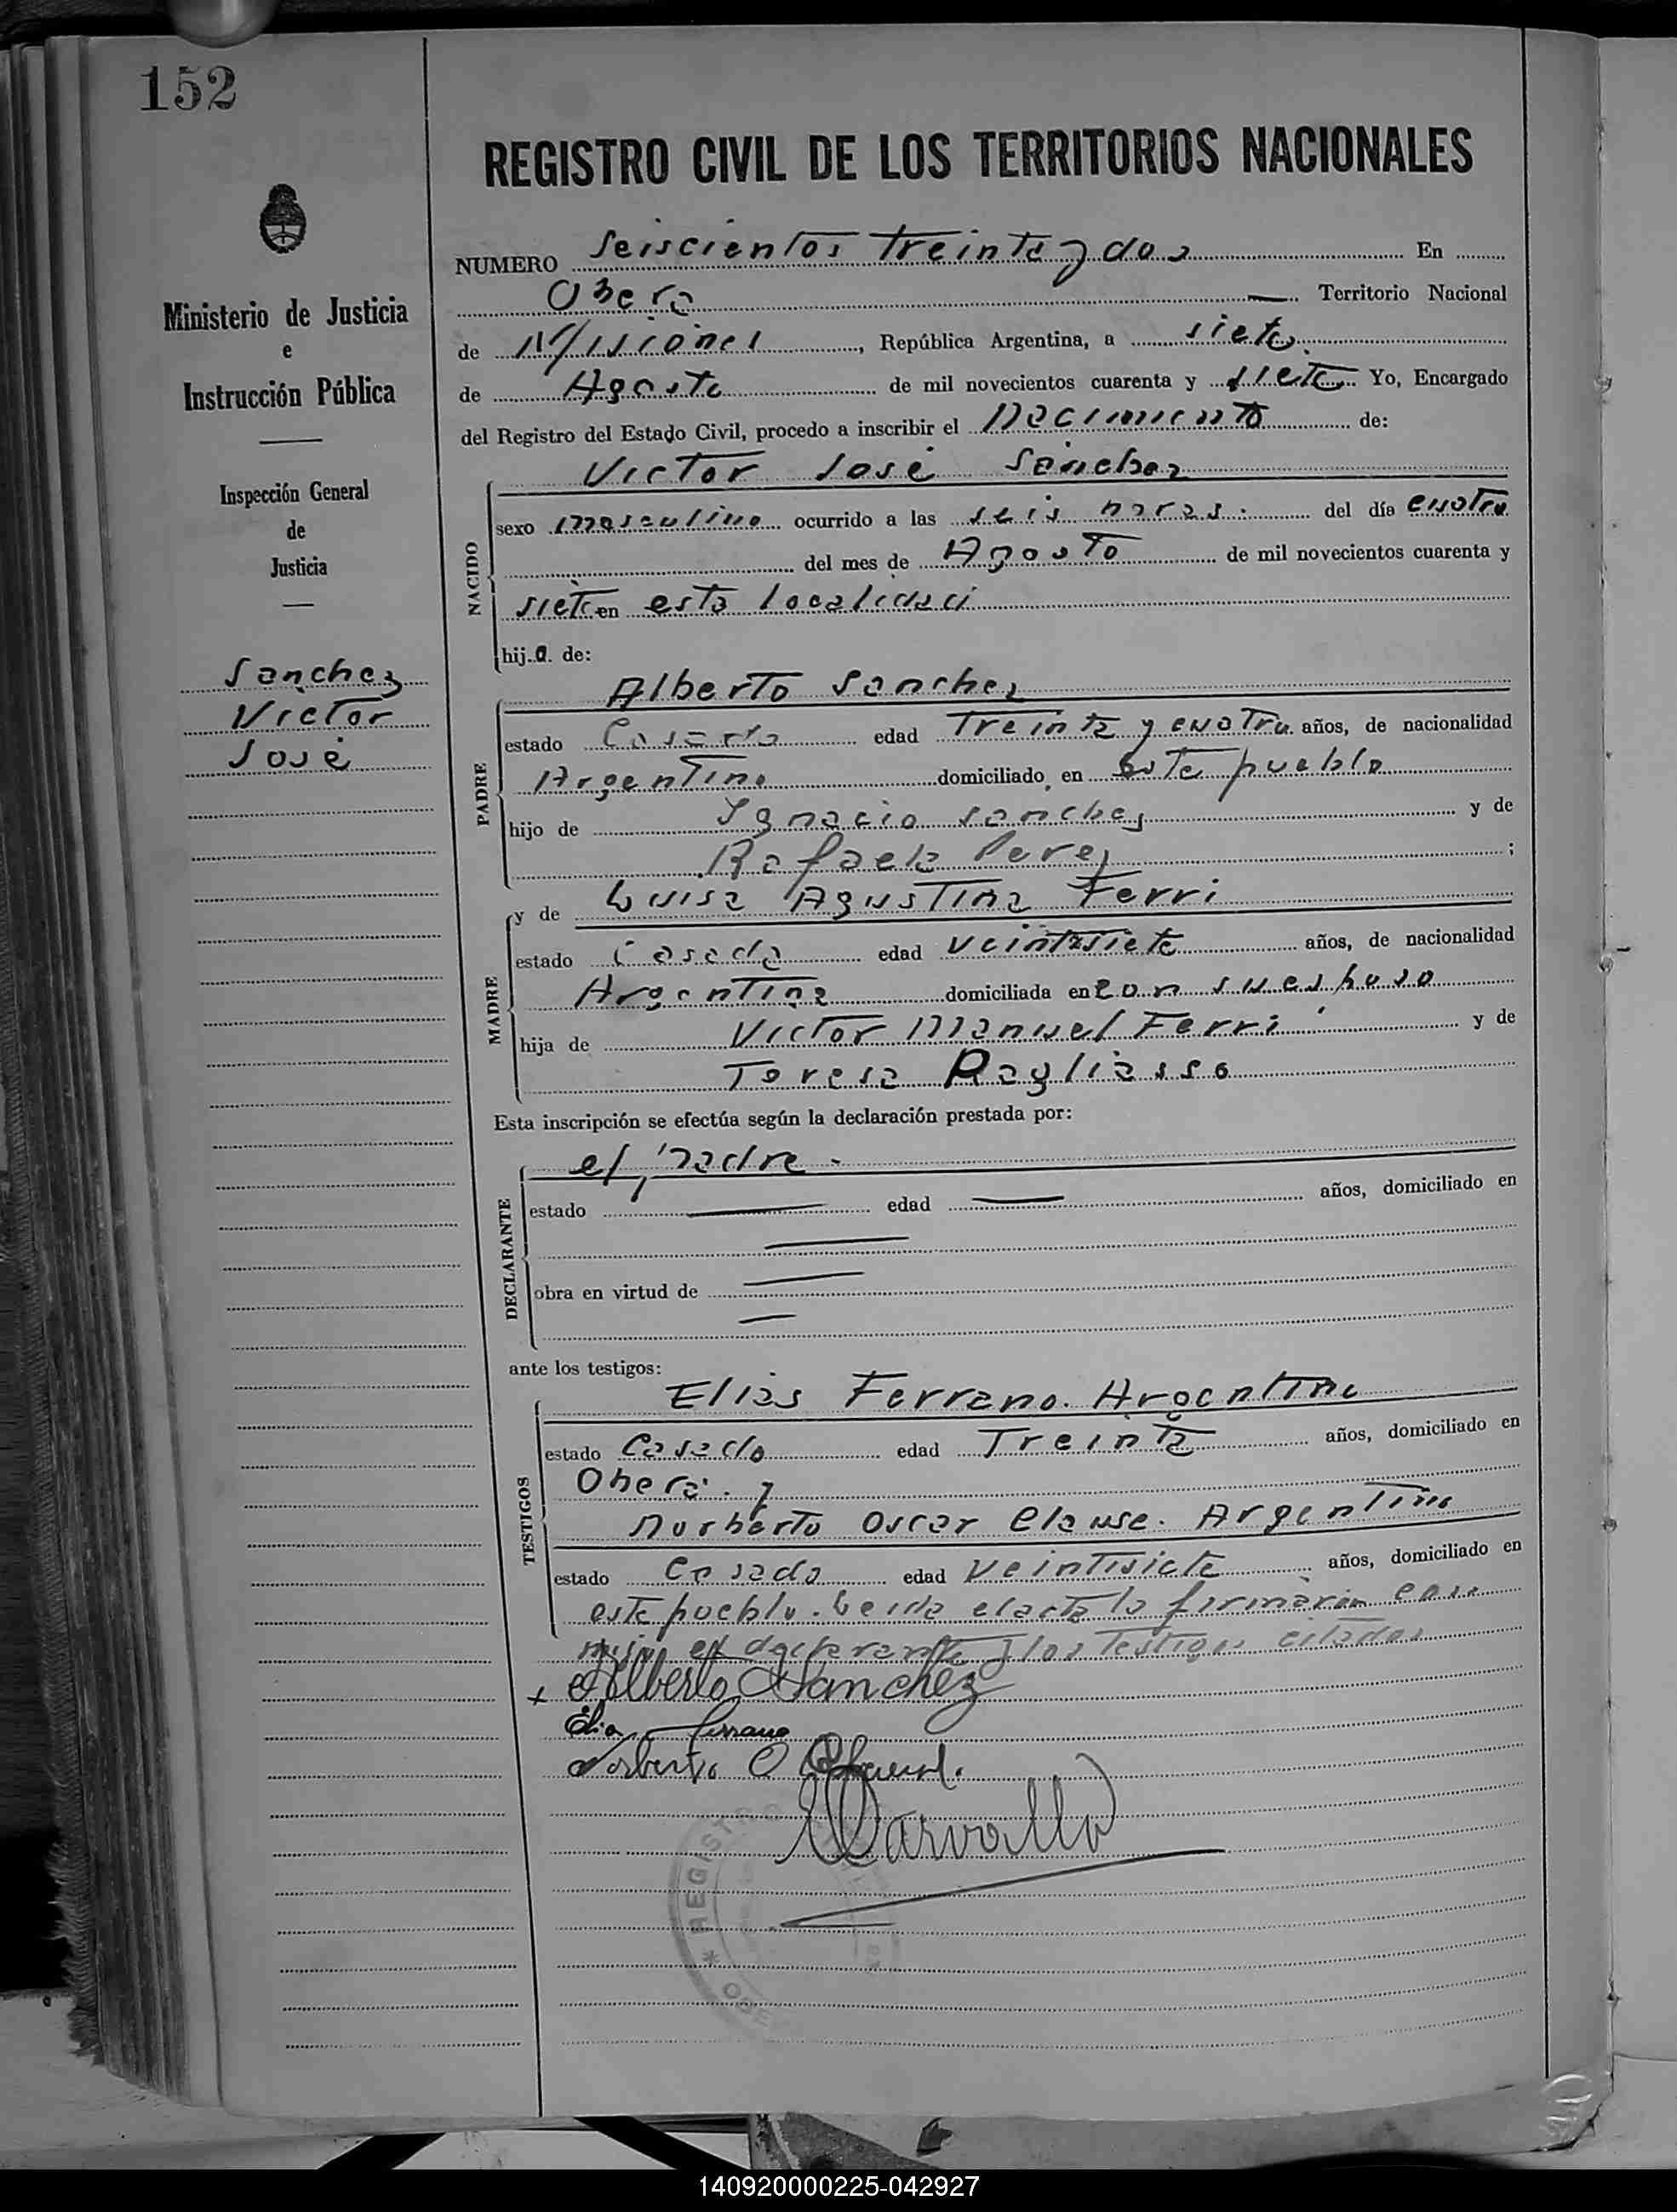 152
REGISTRO CIVIL DE LOS TERRITORIOS NACIONALES
Ministerio de Justicia
e
Instrucción Pública
Inspección General
de
Justicia
Sanchez
Victor
José
NUMERO Seiscientos treinta y dos En
Oberá Territorio Nacional
de Misiones, República Argentina, a siete
de Agosto de mil novecientos cuarenta y siete Yo, Encargado
del Registro del Estado Civil, procedo a inscribir el Nacimiento de:
Victor José Sánchez
NACIDO
sexo masculino ocurrido a las seis horas. del día cuatro
del mes de Agosto de mil novecientos cuarenta y
siete en esta localidad
hijo de:
Alberto Sanchez
PADRE
estado Casado edad Treinta y cuatro años, de nacionalidad
Argentino domiciliado en Este pueblo
hijo de Ignacio Sanchez y de
Rafaela Perez;
y de Luisa Agustina Ferri
MADRE
estado Casada edad veintisiete años, de nacionalidad
Argentina domiciliada en con su esposo
hija de Victor Manuel Ferri y de
Teresa Ragliasso
Esta inscripción se efectúa según la declaración prestada por:
el padre.
DECLARANTE
estado edad años, domiciliado en
obra en virtud de
ante los testigos:
Elias Ferrano. Argentino
TESTIGOS
estado Casado edad Treinta años, domiciliado en
Oberá. y
Norberto Oscar Clause. Argentino
estado Casado edad Veintisiete años, domiciliado en
este pueblo. Leida el acta la firmaron con
migo el declarante y los testigos citados
Alberto Sanchez
Norberto O
* REGISTRO
OBE
140920000225-042927